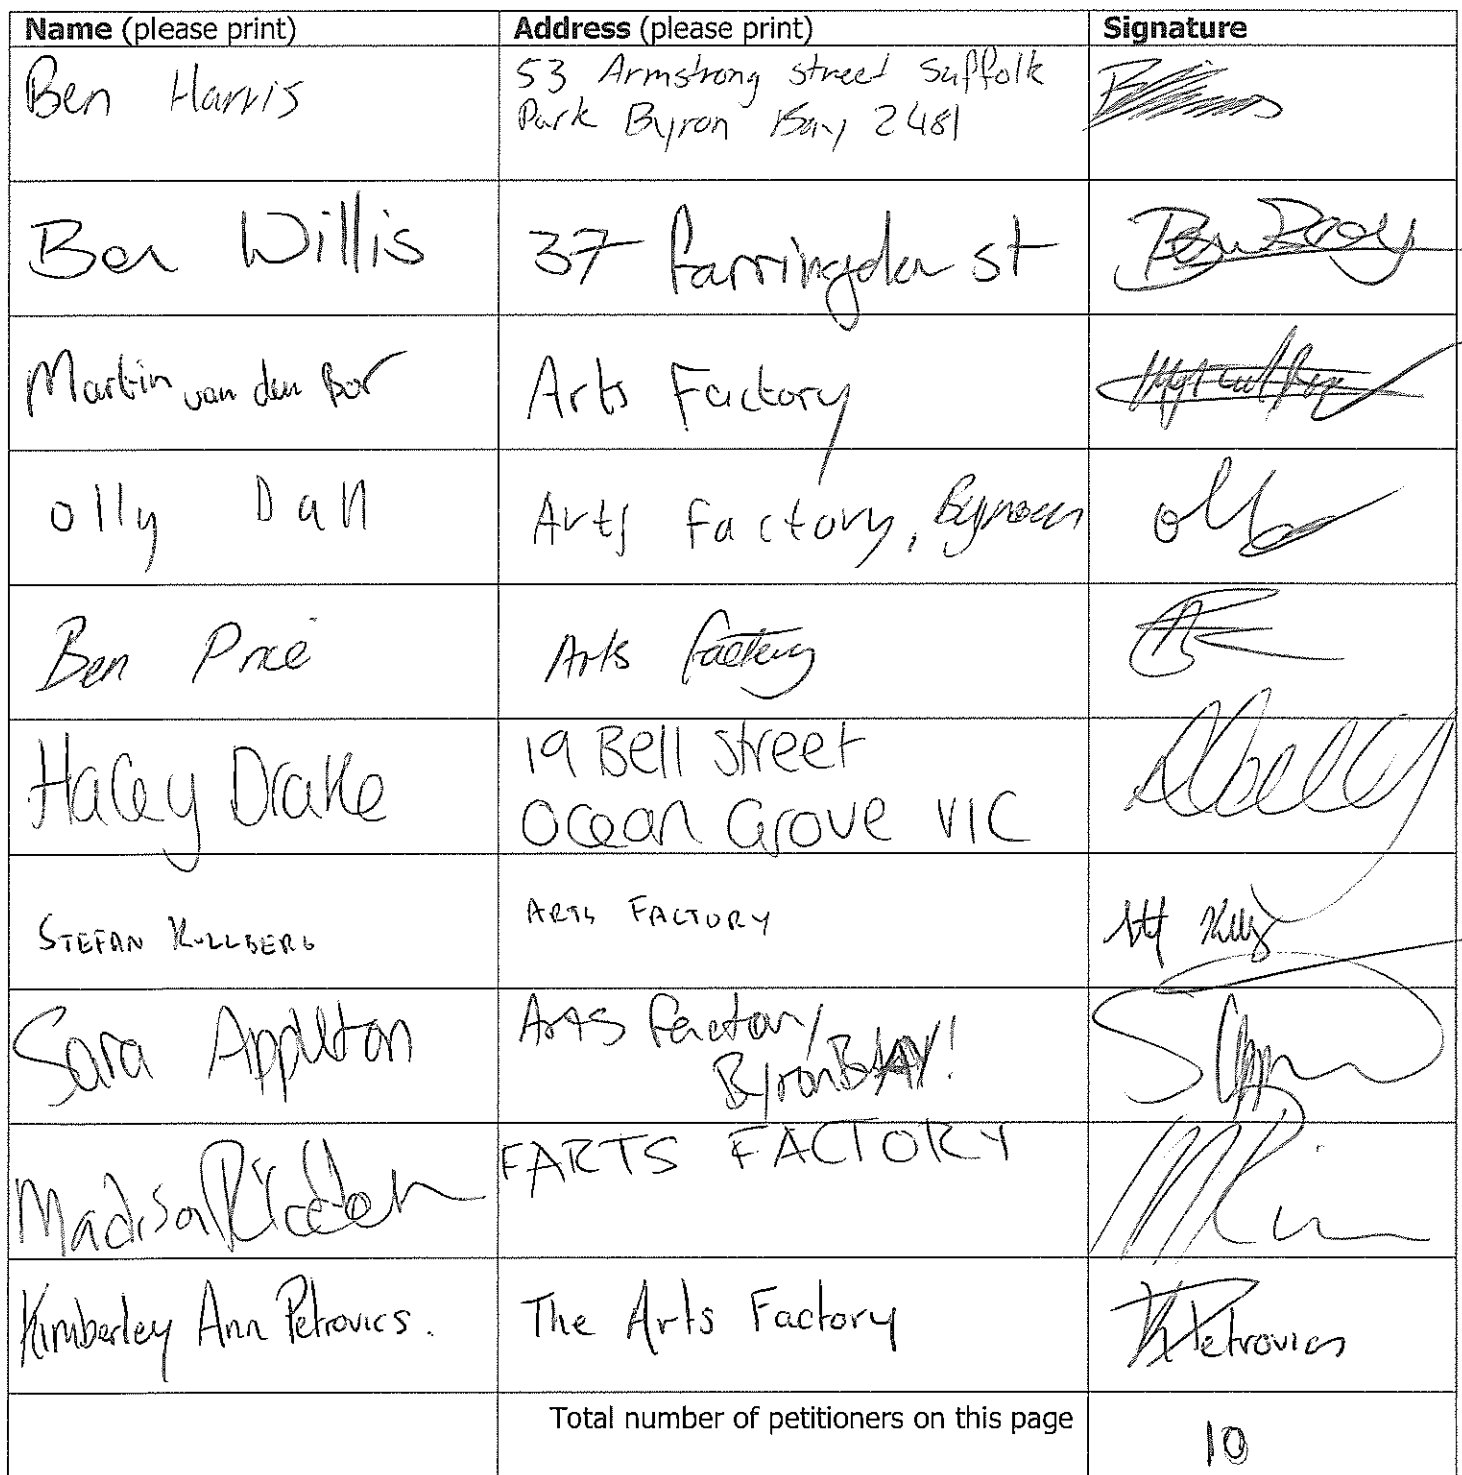 Name (please print) Address (please print) Signature
Ben Harris 53 Armstrong street Suffolk
Park Byron Bay 2481
Ben Willis 37 Farringdon st
Martin van den Bor Arts Factory
olly Dall Arts Factory,
Ben Price Arts Factory
Haley Drake 19 Bell Street
Ocean Grove VIC
STEFAN KULLBERG ARTS FACTORY
Sara Appleton Arts Factory
Byron BAY!
Madison FARTS FACTORY
Kimberley Ann Petrovics. The Arts Factory KPetrovics
Total number of petitioners on this page 10